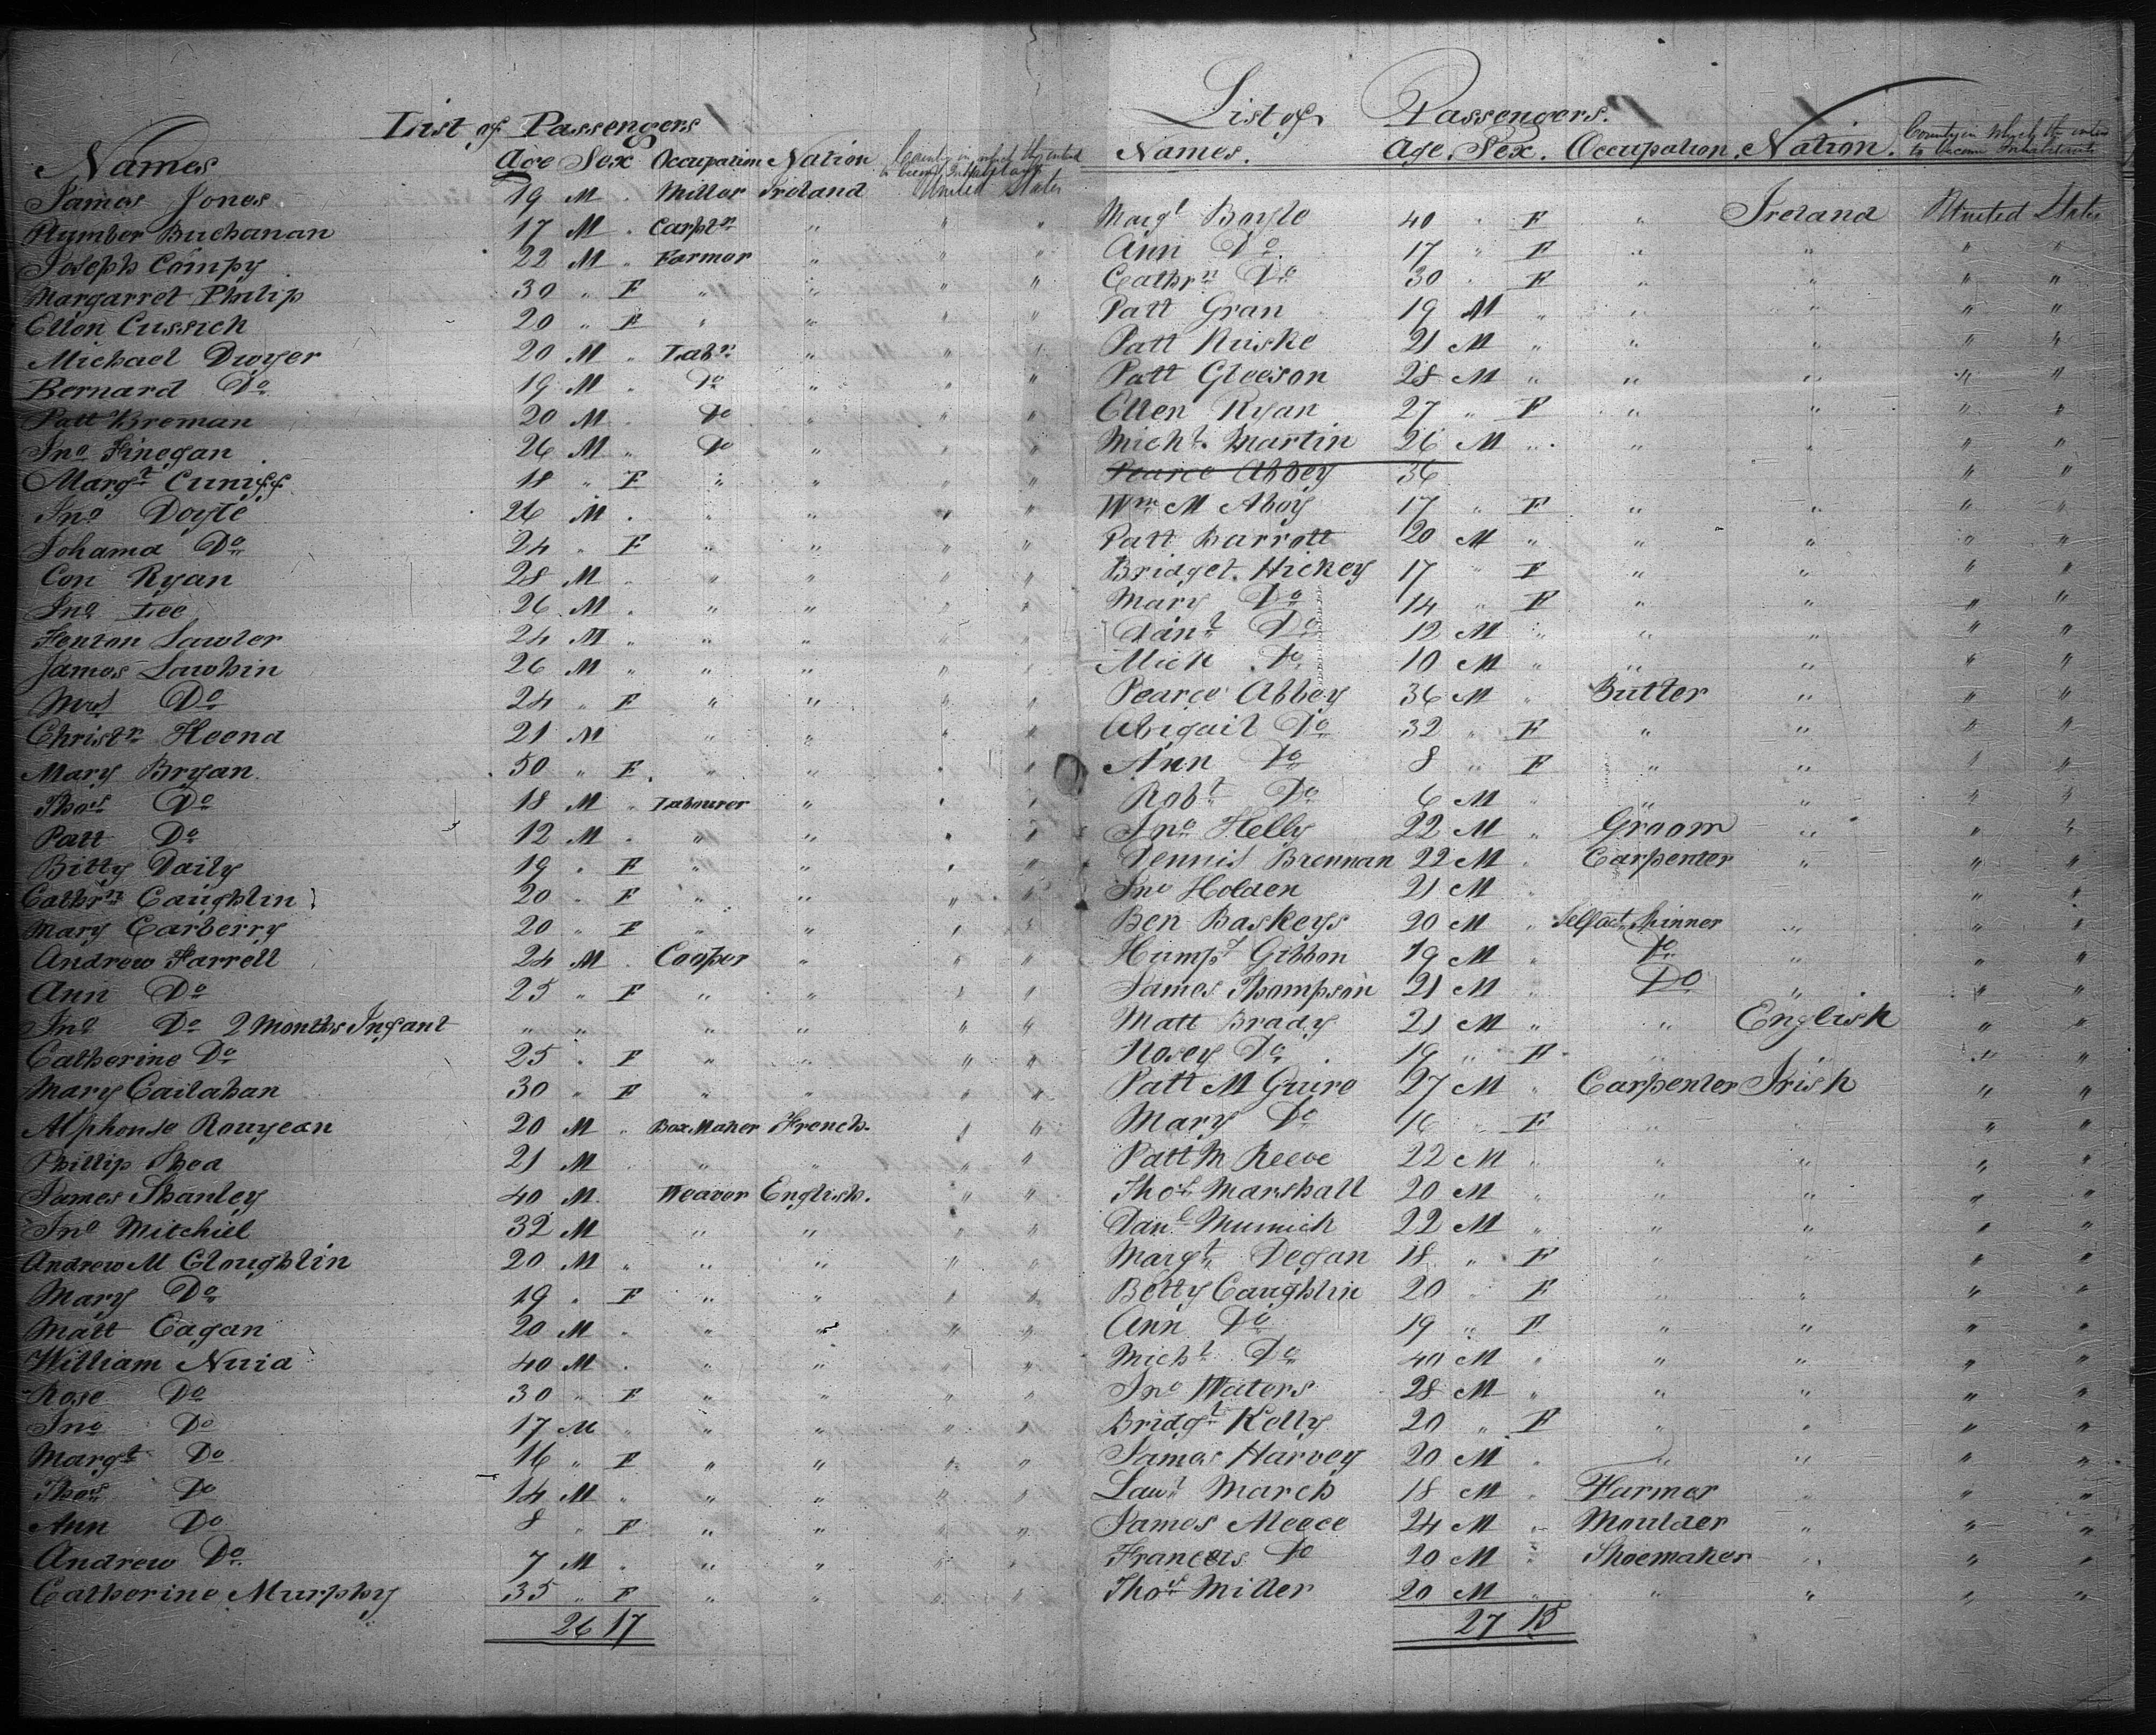 List of Passengers
Names Age Sex Occupation Nation County in which they intend to become Inhabitants
James Jones 19 M " Miller Ireland United States
Plumber Buchanan 17 M " Carptr " " "
Joseph Compy 22 M " Farmer " " "
Margarret Philip 30 " F " " " "
Ellen Cussick 20 " F " " " "
Michael Dwyer 20 M " Labr " " "
Bernard Do 19 M " Do " " "
Patt Breman 20 M " Do " " "
Jno Finegan 26 M " Do " " "
Margt Cuniff 18 " F " " " "
Jno Doyle 26 M " " " " "
Johama Do 24 " F " " " "
Con Ryan 28 M " " " " "
Jno Lee 26 M " " " " "
Fenton Lawler 24 M " " " " "
James Lawhin 26 M " " " " "
Mrs Do 24 " F " " " "
Christn Heena 21 M " " " "
Mary Bryan 50 " F " " " "
Thos Do 18 M " Labourer " " "
Patt Do 12 M " " " " "
Bitty Daily 19 " F " " " "
Cathrn Caughlin 20 " F " " " "
Mary Carberry 20 " F " " " "
Andrew Farrell 24 M " Cooper " " "
Ann Do 25 " F " " " "
Jno Do 2 Months Infant " " " " " "
Catherine Do 25 " F " " " "
Mary Cailahan 30 " F " " " "
Alphonse Rouyean 20 M " Box Maker French " "
Phillip Shea 21 M " " " " "
James Stanley 40 M Weaver English " "
Jno Mitchiel 32 M " " " "
Andrew M Cloughlin 20 M " " " " "
Mary Do 19 " F " " " "
Matt Eagan 20 M " " " " "
William Nuia 40 M " " " " "
Rose Do 30 " F " " " "
Jno Do 17 M " " " " "
Margt Do 16 " F " " " "
Thos Do 14 M " " " " "
Ann Do 8 " F " " " "
Andrew Do 7 M " " " " "
Catherine Murphy 35 " F " " " "
26 17
List of Passengers.
Names. Age. Sex. Occupation. Nation. County in which they intend to become Inhabitants
Margt Boyle 40 " F " Ireland United States
Ann Do 17 " F " " " "
Cathrn Do 30 " F " " " "
Patt Gran 19 M " " " " "
Patt Ruske 21 M " " " " "
Patt Gleeson 28 M " " " " "
Ellen Ryan 27 " F " " " "
Michl Martin 26 M " " " " "
Pearce Abbey 36 " "
Wm M Aboy 17 " F " " " "
Patt Barrott 20 M " " " " "
Bridget Hickey 17 " F " " " "
Mary Do 14 " F " " " "
Danl Do 12 M " " " " "
Mich Do 10 M " " " " "
Pearce Abbey 36 M " Butler " " "
Abigail Do 32 " F " " " "
Ann Do 8 " F " " " "
Robt Do 6 M " " " " "
Jno Helly 22 M " Groom " " "
Dennis Brennan 22 M " Carpenter " " "
Jno Holden 21 M " " "
Ben Baskeys 20 M " Selfact Spinner " " "
Humpy Gibbon 19 M " Do " " "
James Thompson 21 M " Do " " "
Matt Brady 21 M " " English " "
Rosey Do 19 " F " " " "
Patt M Guire 27 M " Carpenter Irish " "
Mary Do 16 " F " " " "
Patt M Reeve 22 M " " " " "
Thos Marshall 20 M " " " " "
Danl Mumich 22 M " " " " "
Margt Degan 18 " F " " " "
Betty Caughlin 20 " F " " " "
Ann Do 19 " F " " " "
Michl Do 40 M " " " " "
Jno Waters 28 M " " " " "
Bridgt Kelly 20 " F " " " "
James Harvey 20 M " " " " "
Lawr March 18 M " Farmer " " "
James Meece 24 M " Moulder " " "
Francis Do 20 M " Shoemaker " " "
Thos Miller 20 M " " " " "
27 15